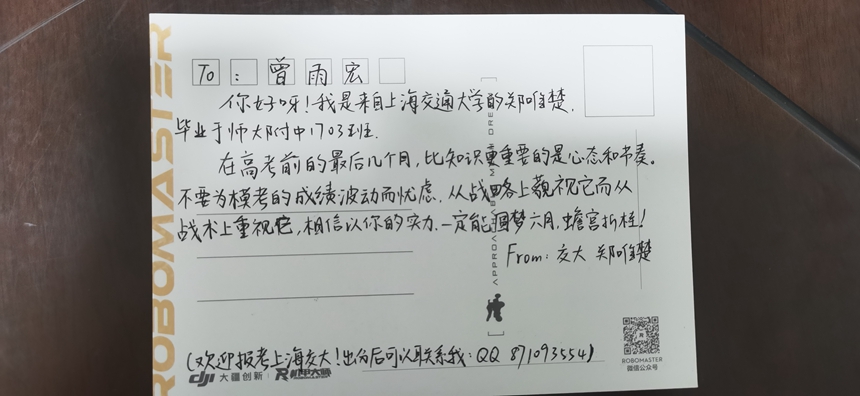 ROBOMASTER
To：曾雨宏
你好呀！我是来自上海交通大学的郑唯楚，
毕业于师大附中1703班.
在高考前的最后几个月，比知识更重要的是心态和节奏。
不要为模考的成绩波动而忧虑，从战略上藐视它而从
战术上重视它，相信以你的实力，一定能圆梦六月，蟾宫折桂！
From：交大 郑唯楚
(欢迎报考上海交大！出分后可以联系我：QQ 871093554)
dji 大疆创新 机甲大师
ROBOMASTER
微信公众号